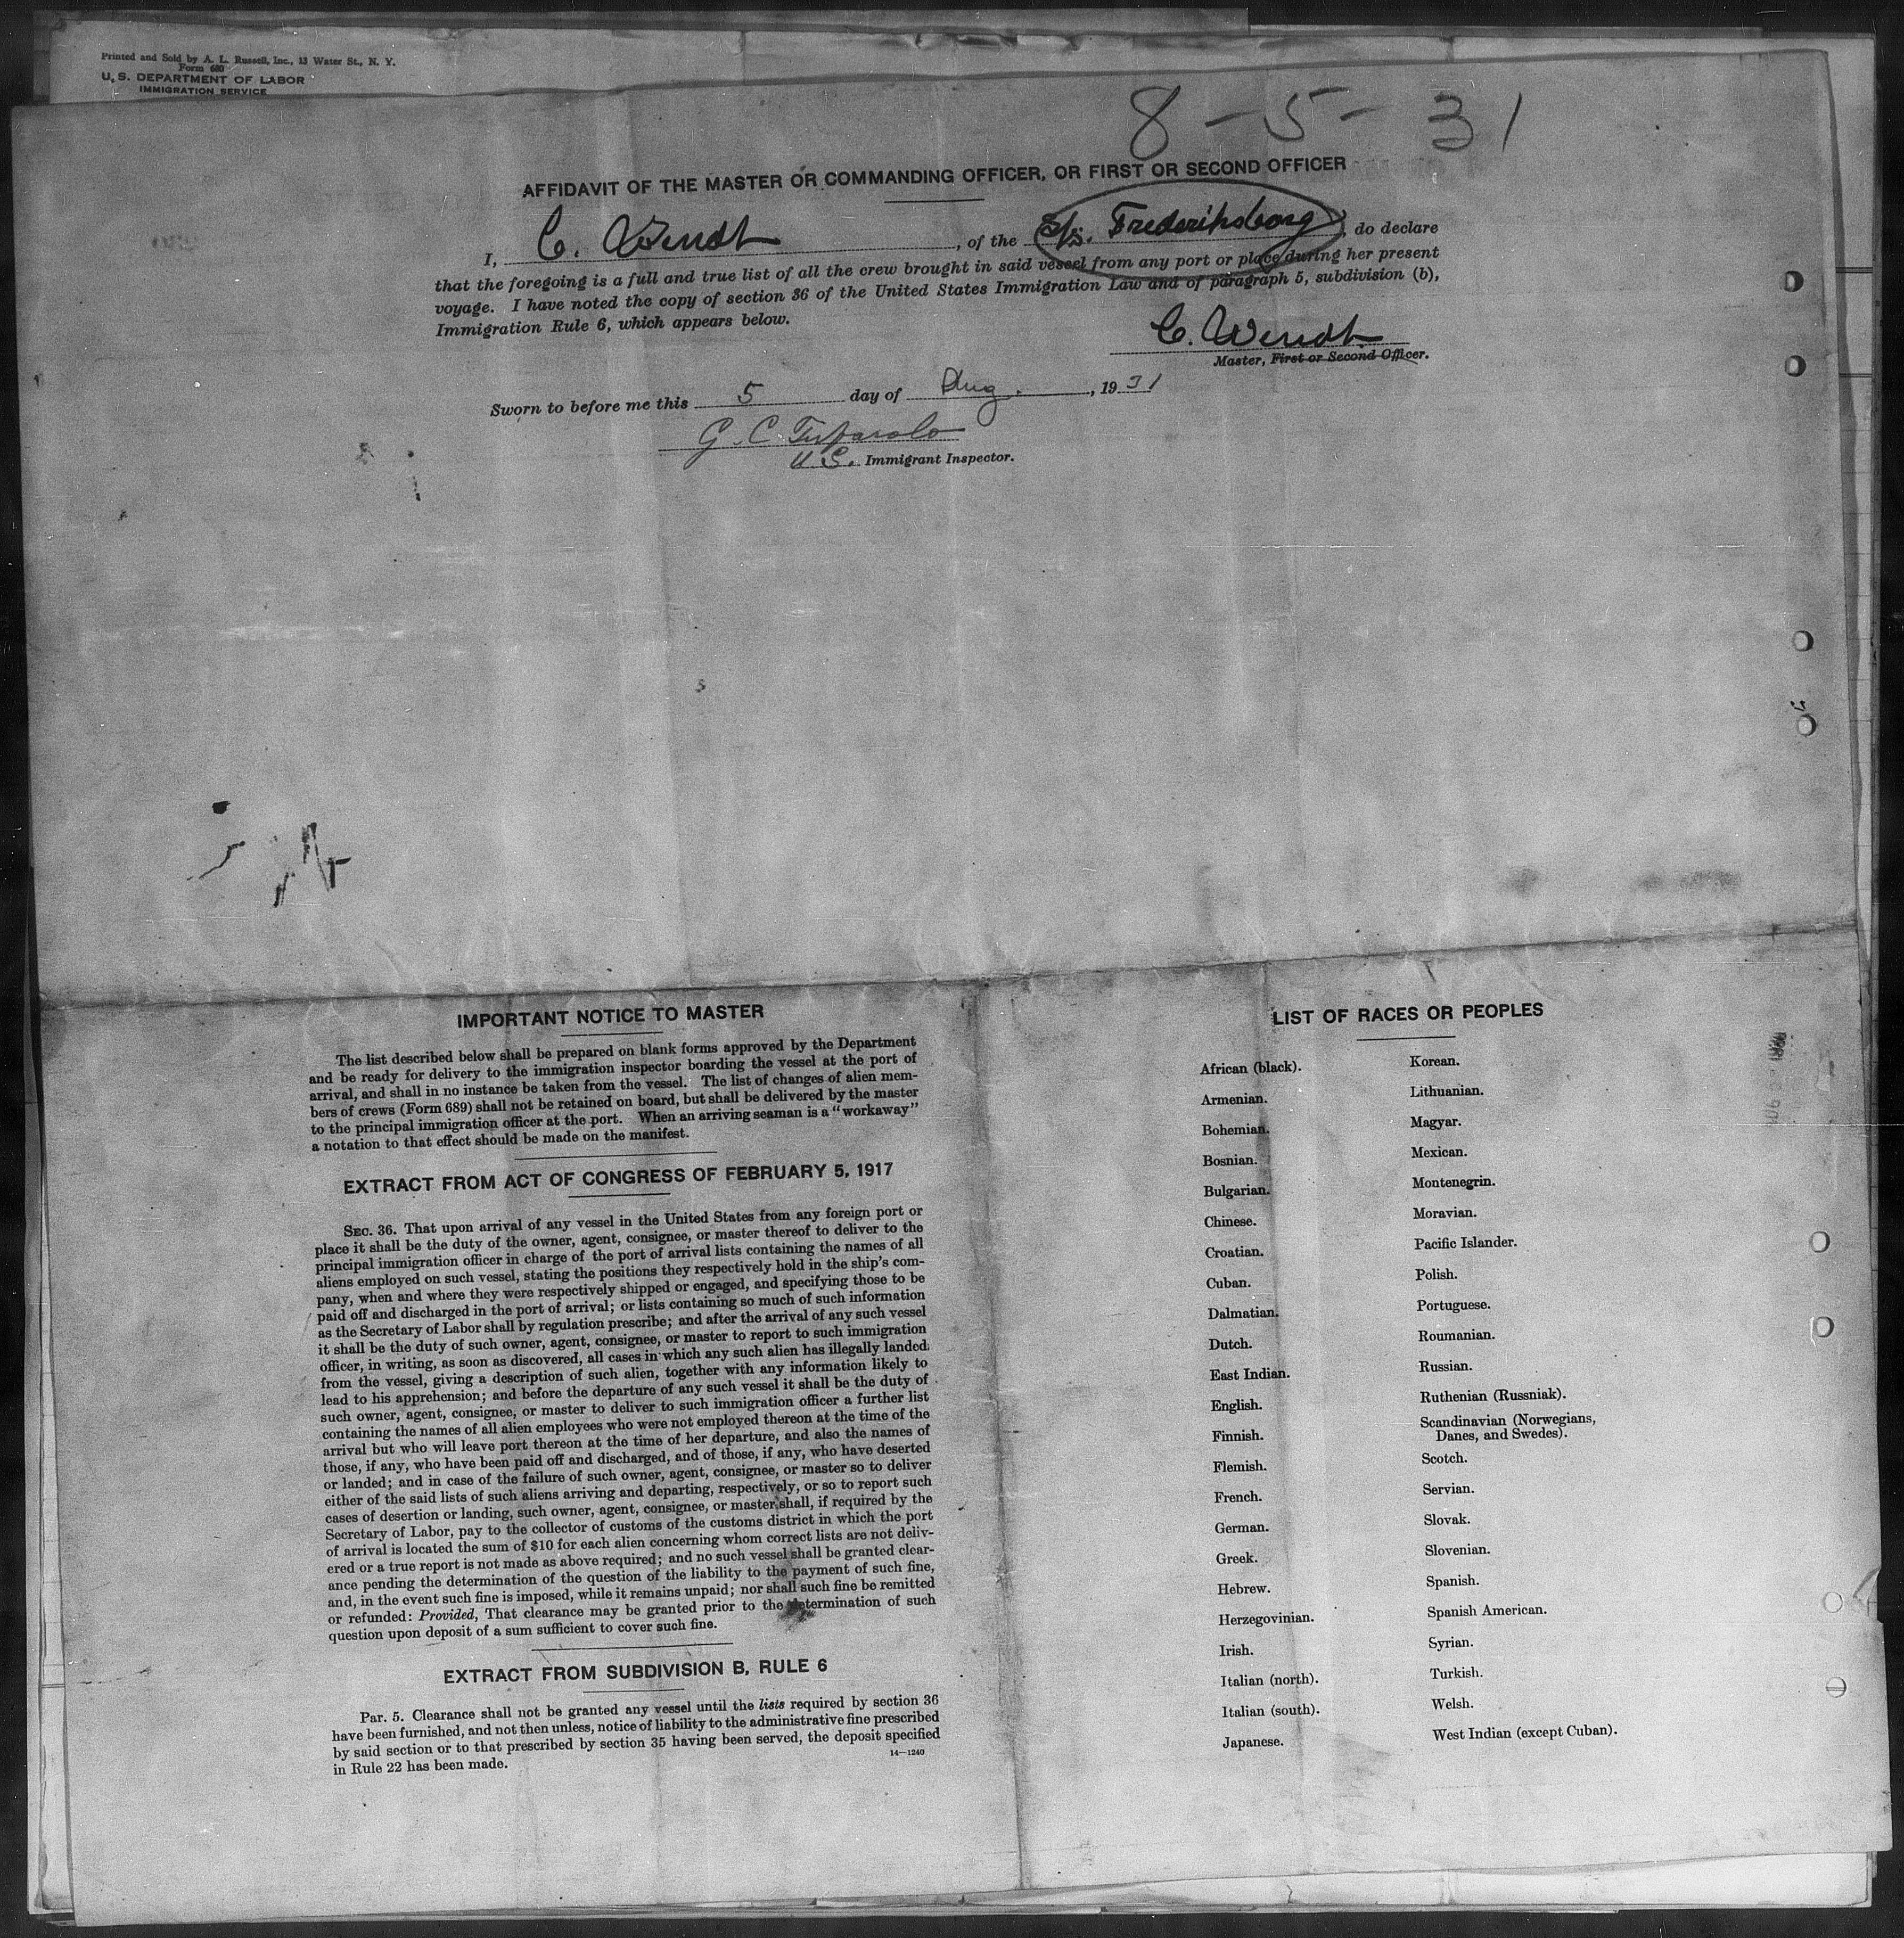 Printed and Sold by A. L. Russell, Inc., 13 Water St., N. Y.
Form 680
U. S. DEPARTMENT OF LABOR
IMMIGRATION SERVICE
8 - 5 - 31
AFFIDAVIT OF THE MASTER OR COMMANDING OFFICER, OR FIRST OR SECOND OFFICER
I, C. Wendt, of the S/s. Frederiksborg, do declare
that the foregoing is a full and true list of all the crew brought in said vessel from any port or place during her present
voyage. I have noted the copy of section 36 of the United States Immigration Law and of paragraph 5, subdivision (b),
Immigration Rule 6, which appears below.
C. Wendt
Master, First or Second Officer.
Sworn to before me this 5 day of Aug., 1931
G. C.
U. S. Immigrant Inspector.
IMPORTANT NOTICE TO MASTER
The list described below shall be prepared on blank forms approved by the Department
and be ready for delivery to the immigration inspector boarding the vessel at the port of
arrival, and shall in no instance be taken from the vessel. The list of changes of alien mem-
bers of crews (Form 689) shall not be retained on board, but shall be delivered by the master
to the principal immigration officer at the port. When an arriving seaman is a "workaway"
a notation to that effect should be made on the manifest.
EXTRACT FROM ACT OF CONGRESS OF FEBRUARY 5, 1917
SEC. 36. That upon arrival of any vessel in the United States from any foreign port or
place it shall be the duty of the owner, agent, consignee, or master thereof to deliver to the
principal immigration officer in charge of the port of arrival lists containing the names of all
aliens employed on such vessel, stating the positions they respectively hold in the ship's com-
pany, when and where they were respectively shipped or engaged, and specifying those to be
paid off and discharged in the port of arrival; or lists containing so much of such information
as the Secretary of Labor shall by regulation prescribe; and after the arrival of any such vessel
it shall be the duty of such owner, agent, consignee, or master to report to such immigration
officer, in writing, as soon as discovered, all cases in which any such alien has illegally landed
from the vessel, giving a description of such alien, together with any information likely to
lead to his apprehension; and before the departure of any such vessel it shall be the duty of
such owner, agent, consignee, or master to deliver to such immigration officer a further list
containing the names of all alien employees who were not employed thereon at the time of the
arrival but who will leave port thereon at the time of her departure, and also the names of
those, if any, who have been paid off and discharged, and of those, if any, who have deserted
or landed; and in case of the failure of such owner, agent, consignee, or master so to deliver
either of the said lists of such aliens arriving and departing, respectively, or so to report such
cases of desertion or landing, such owner, agent, consignee, or master shall, if required by the
Secretary of Labor, pay to the collector of customs of the customs district in which the port
of arrival is located the sum of $10 for each alien concerning whom correct lists are not deliv-
ered or a true report is not made as above required; and no such vessel shall be granted clear-
ance pending the determination of the question of the liability to the payment of such fine,
and, in the event such fine is imposed, while it remains unpaid; nor shall such fine be remitted
or refunded: Provided, That clearance may be granted prior to the determination of such
question upon deposit of a sum sufficient to cover such fine.
EXTRACT FROM SUBDIVISION B, RULE 6
Par. 5. Clearance shall not be granted any vessel until the lists required by section 36
have been furnished, and not then unless, notice of liability to the administrative fine prescribed
by said section or to that prescribed by section 35 having been served, the deposit specified
in Rule 22 has been made.
14—1240
LIST OF RACES OR PEOPLES
African (black).
Armenian.
Bohemian.
Bosnian.
Bulgarian.
Chinese.
Croatian.
Cuban.
Dalmatian.
Dutch.
East Indian.
English.
Finnish.
Flemish.
French.
German.
Greek.
Hebrew.
Herzegovinian.
Irish.
Italian (north).
Italian (south).
Japanese.
Korean.
Lithuanian.
Magyar.
Mexican.
Montenegrin.
Moravian.
Pacific Islander.
Polish.
Portuguese.
Roumanian.
Russian.
Ruthenian (Russniak).
Scandinavian (Norwegians,
Danes, and Swedes).
Scotch.
Servian.
Slovak.
Slovenian.
Spanish.
Spanish American.
Syrian.
Turkish.
Welsh.
West Indian (except Cuban).